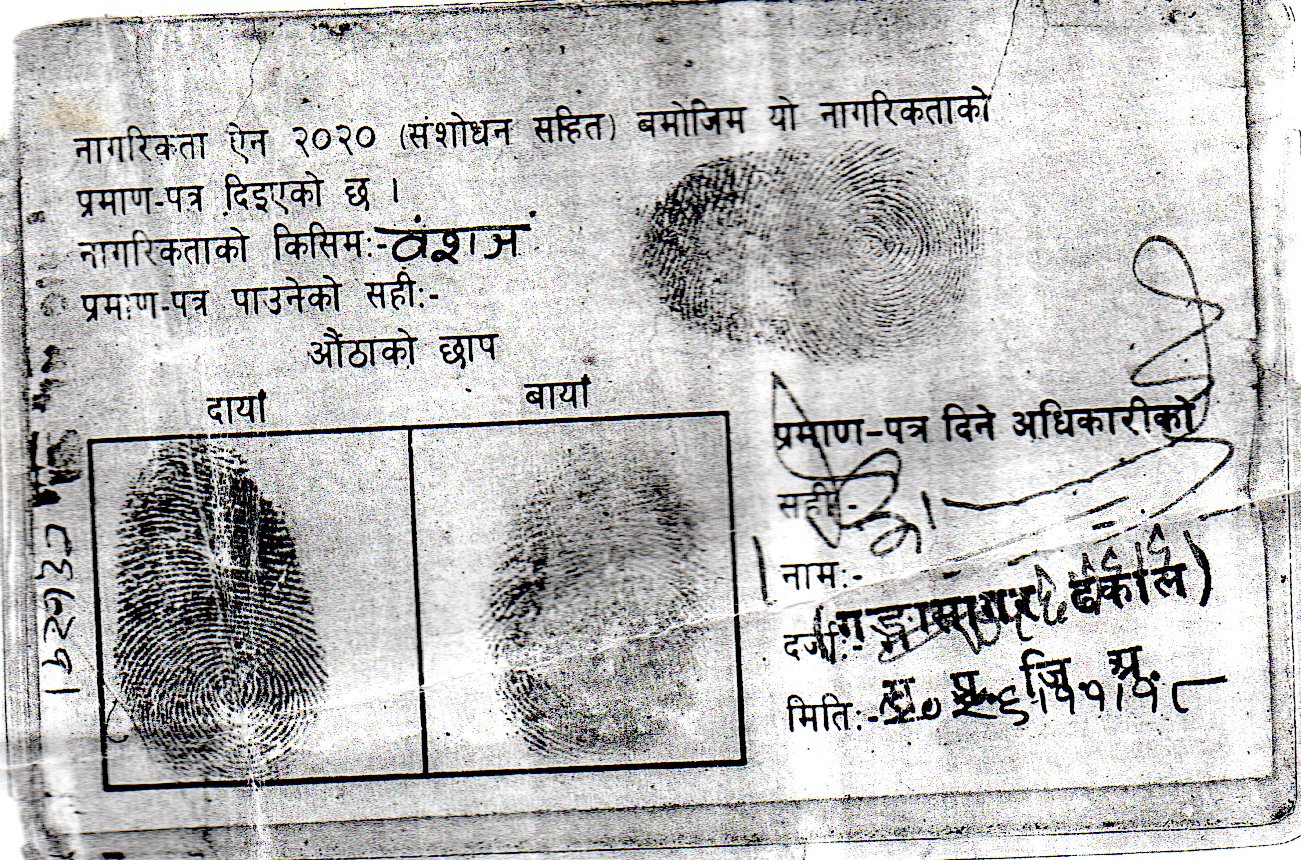 नागरिकता ऐन २०२० (संशोधन सहित) बमोजिम यो नागरिकताको
प्रमाण-पत्र दिइएको छ ।
नागरिकताको किसिम:- वंशज
प्रमाण-पत्र पाउनेको सही:-
औंठाको छाप
दायाँ
बायाँ
प्रमाण-पत्र दिने अधिकारीको
सही:-
नाम:-
(गङ्गासागर ढकाल)
दर्जा:-
प्र. जि. अ.
मिति:-